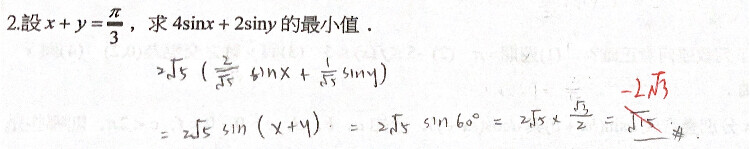 2.設 x + y = π/3 , 求 4sinx + 2siny 的最小值 .
2√5 ( 2/√5 sinx + 1/√5 siny )
-2√3
= 2√5 sin ( x+y ) . = 2√5 sin 60° = 2√5 × √3/2 = √15 #.